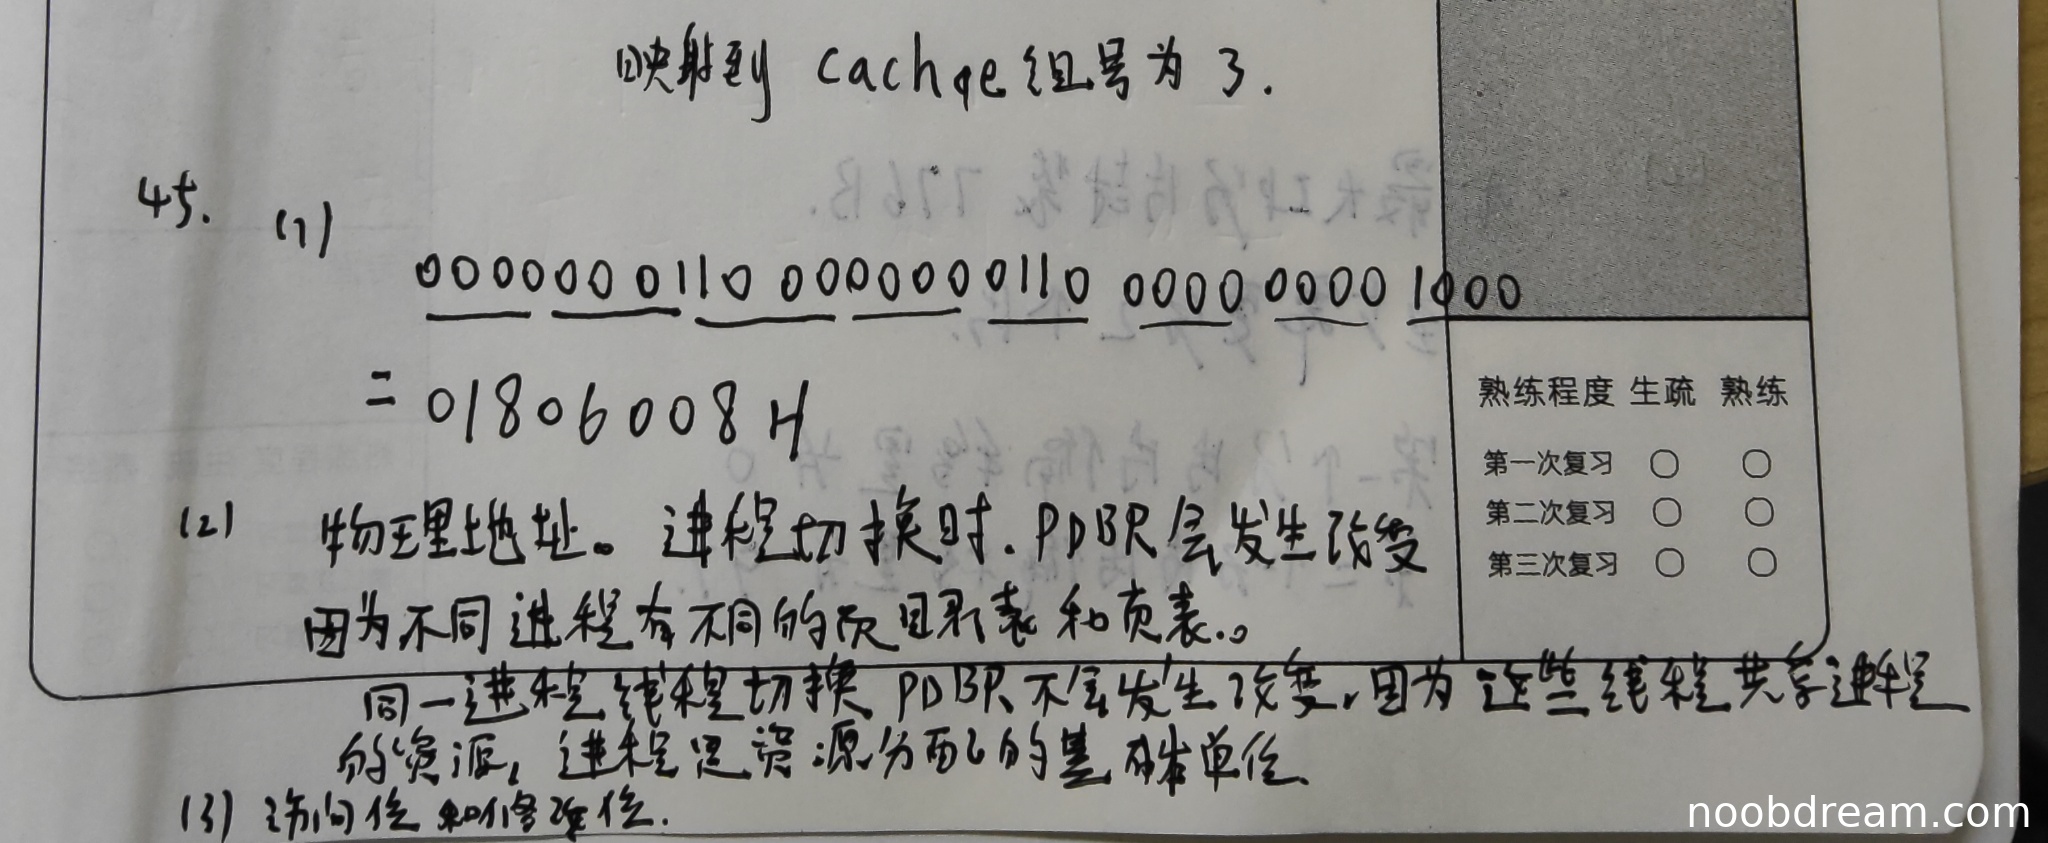 映射到 Cache组号为 3.
45. (1)
0000000110 0000000110 0000 0000 1000
= 01806008H
(2) 物理地址。进程切换时. PDBR会发生改变
因为不同进程有不同的页目录表和页表.。
同一进程线程切换 PDBR不会发生改变,因为这些线程共享进程
的资源, 进程是资源分配的基本单位
(3) 访问位和修改位.
熟练程度 生疏 熟练
第一次复习 ○ ○
第二次复习 ○ ○
第三次复习 ○ ○
noobdream.com